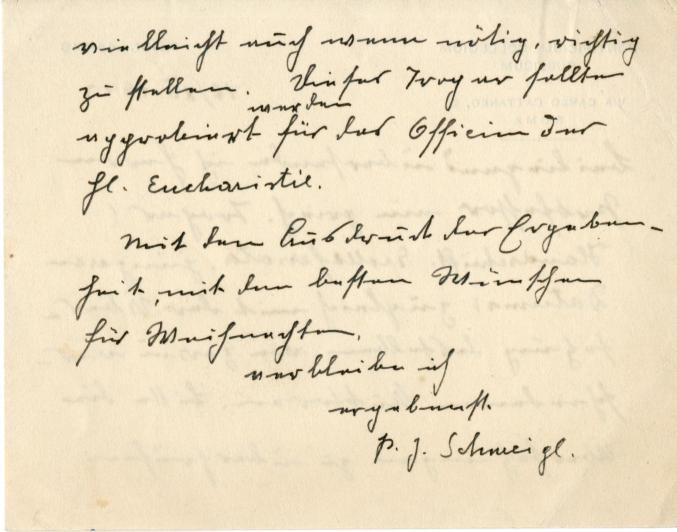 vielleicht auch wenn nötig, richtig
zu stellen. Dieses Tropar sollte
werden
approbiert für das Officium der
hl. Eucharistie.
Mit dem Ausdruck der Ergeben-
heit, mit den besten Wünschen
für Weihnachten,
verbleibe ich
ergebenst.
P. J. Schweigl.